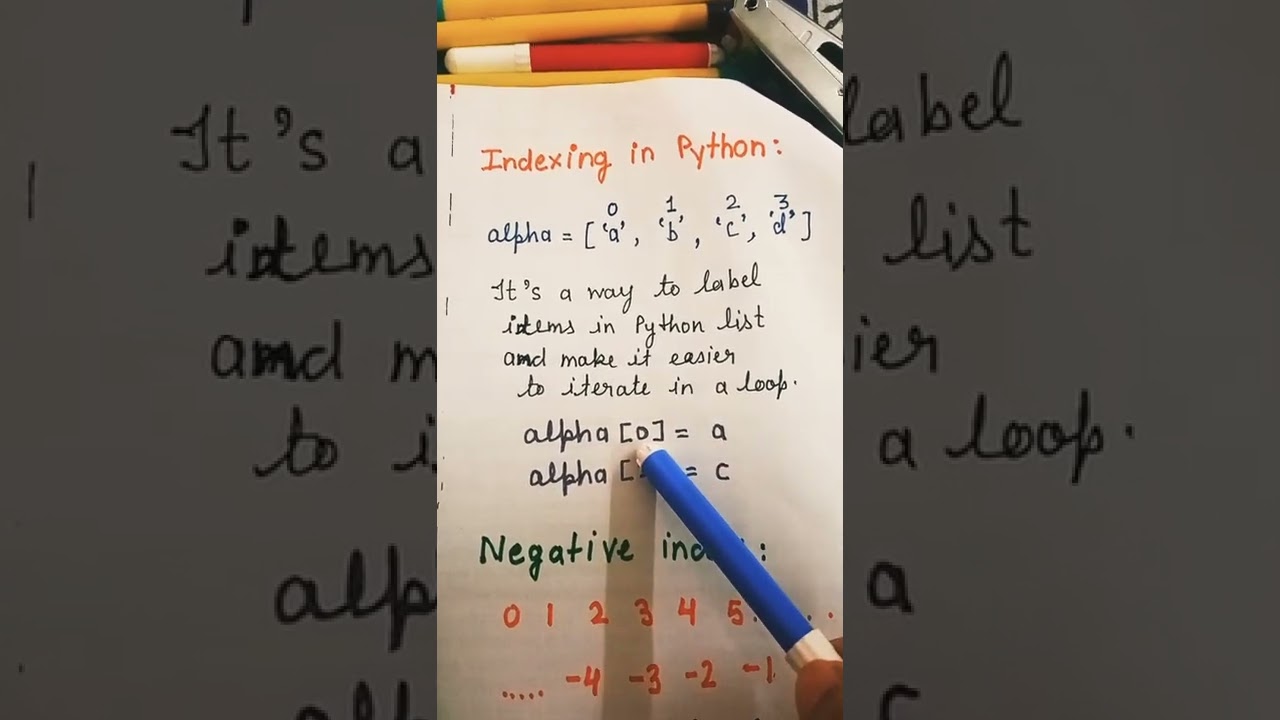 Indexing in Python:
0 1 2 3
alpha = ['a', 'b', 'c', 'd']
It's a way to label
items in Python list
and make it easier
to iterate in a loop.
alpha [0] = a
alpha [ = c
Negative :
0 1 2 3 4 5 . . .
..... -4 -3 -2 -1